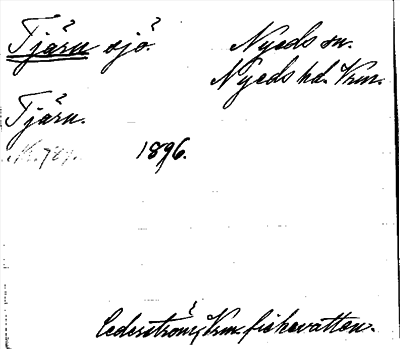 Tjärn sjö. Nyeds sn.
Nyeds hd. Vrm.
Tjärn.
1896.
Cederström, Vrm fiskevatten.